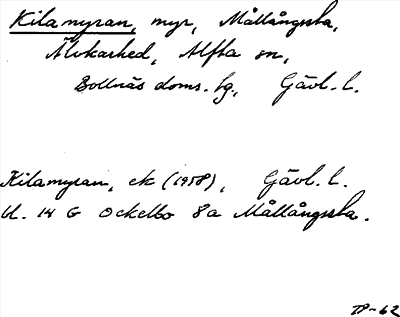 Kilamyran, myr, Mållångssta,
Älvkarhed, Alfta sn,
Bollnäs doms. sg., Gävl. l.
Kilamyran, ek (1958), Gävl. l.
bl. 14 G Ockelbo 8a Mållångssta.
TP-62